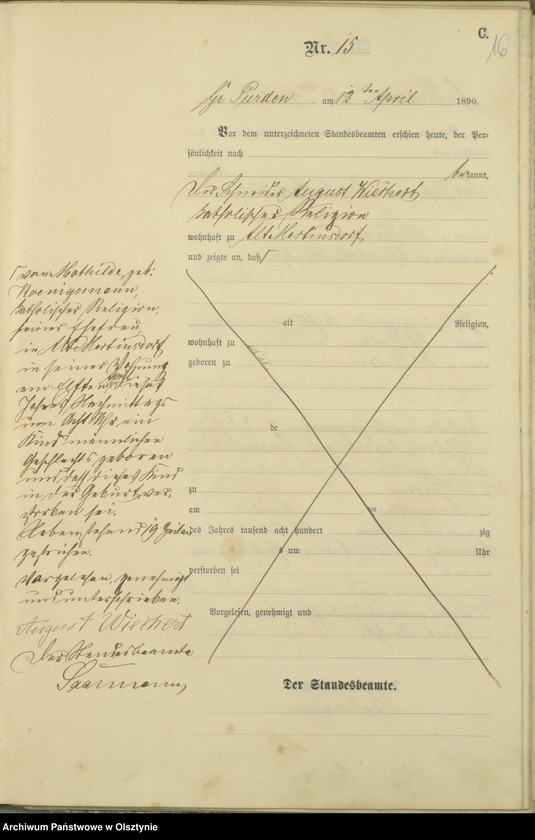 C.
16
Nr. 15
Gr Purden am 12ten April 1890.
Vor dem unterzeichneten Standesbeamten erschien heute, der Per-
sönlichkeit nach
bekannt,
der Schneider August Wiechert
katholischer Religion
wohnhaft zu Alt Mertinsdorf
und zeigte an, daß
von Mathilde geb:
Koenigsmann,
katholischer Religion,
seiner Ehefrau
in Alt Mertinsdorf
in seiner Wohnung
am elften April dieses
Jahres Nachmittags
um acht Uhr ein
Kind männlichen
Geschlechts geboren
und daß dieses Kind
in der Geburt ver-
storben sei.
Nebenstehend 19 Zeilen
gestrichen.
Vorgelesen, genehmigt
und unterschrieben.
August Wiechert
Der Standesbeamte
alt Religion,
wohnhaft zu
geboren zu
de
zu
am ten
des Jahres tausend acht hundert zig
s um Uhr
verstorben sei
Vorgelesen, genehmigt und
Der Standesbeamte.
Archiwum Państwowe w Olsztynie